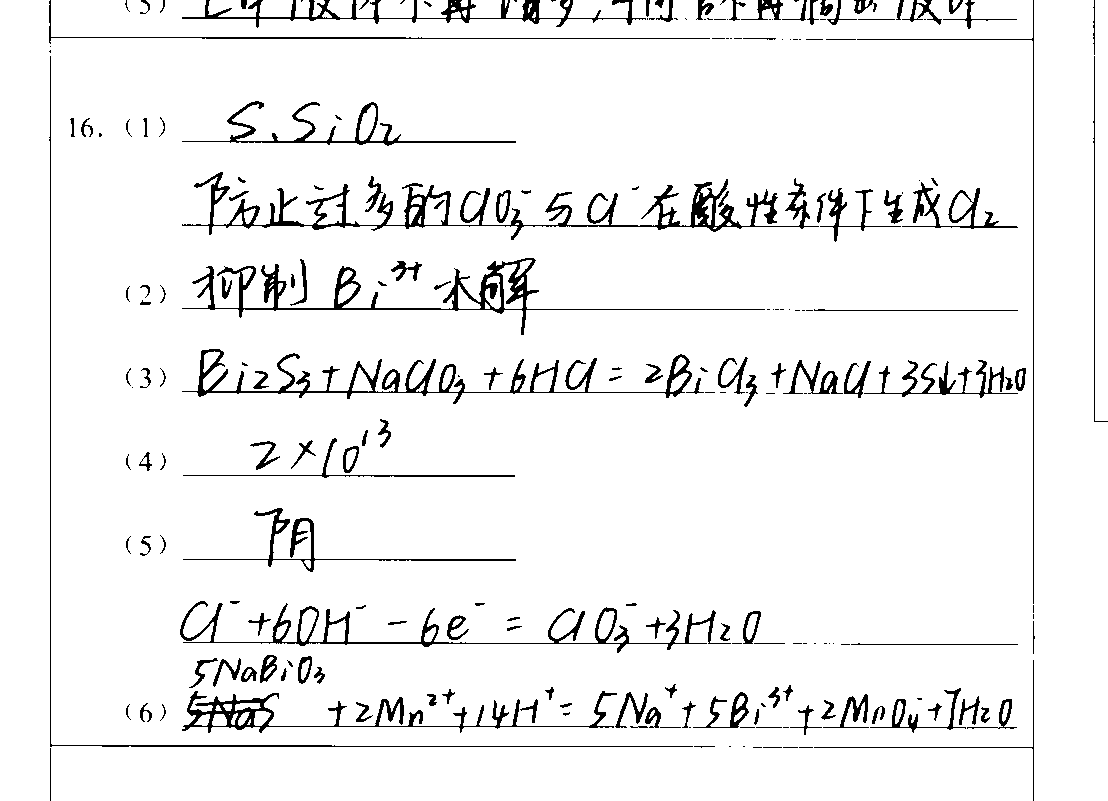 (5) 上申液体不再增多,
16. (1) S、SiO₂
防止过多的ClO₃⁻与Cl⁻在酸性条件下生成Cl₂
(2) 抑制 Bi³⁺ 水解
(3) Bi₂S₃+NaClO₃+6HCl=2BiCl₃+NaCl+3S↓+3H₂O
(4) 2×10¹³
(5) 阴
Cl⁻+6OH⁻-6e⁻=ClO₃⁻+3H₂O
5NaBiO₃
(6) +2Mn²⁺+14H⁺=5Na⁺+5Bi³⁺+2MnO₄⁻+7H₂O